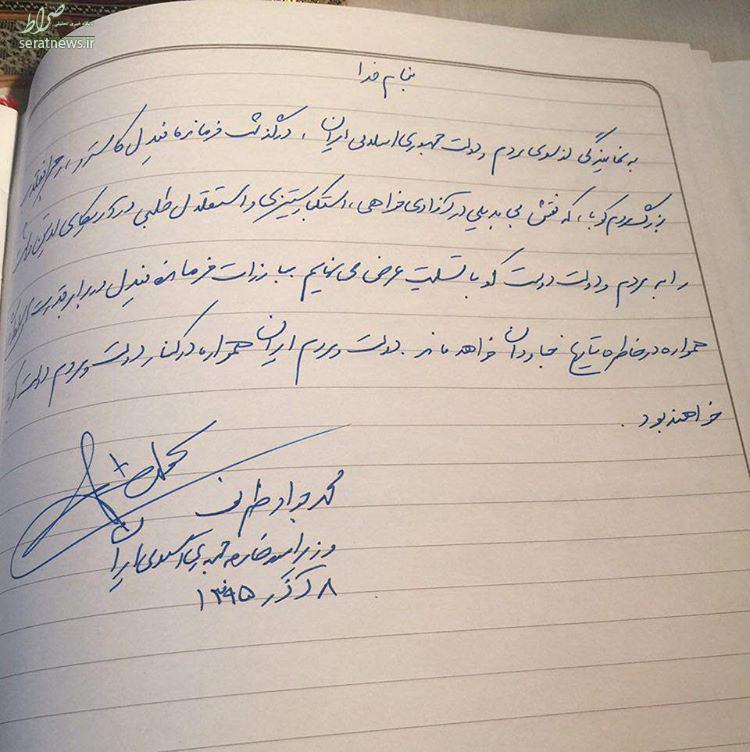 صراط
seratnews.ir
بنام خدا
به نمایندگی از سوی مردم و دولت جمهوری اسلامی ایران، درگذشت فرمانده فیدل کاسترو، رهبر انقلابی
بزرگ مردم کوبا، که نقش بی بدیلی در آزادی خواهی، استکبارستیزی و استقلال طلبی در آمریکای لاتین داشت
را به مردم و دولت دوست کوبا تسلیت عرض می نمایم. مبارزات فرمانده فیدل در برابر قدرت
همواره در خاطره جاودان خواهد ماند. دولت و مردم ایران همواره در کنار دولت و مردم دوست
خواهند بود.
محمد جواد ظریف
وزیر امور خارجه جمهوری اسلامی ایران
۸ آذر ۱۳۹۵